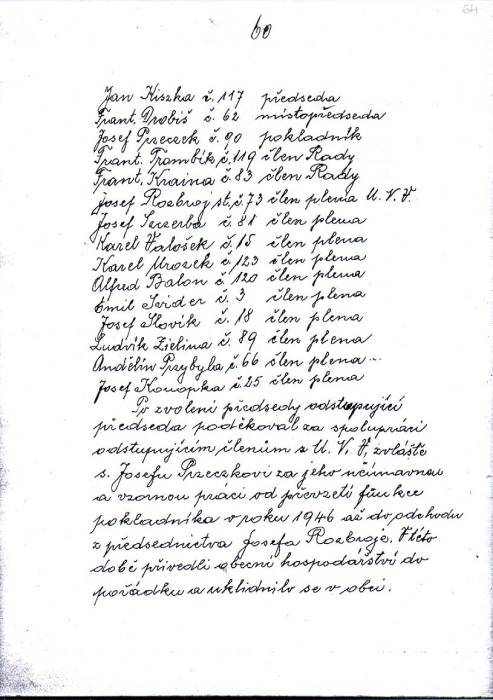 64
60
Jan Kiszka č. 117 předseda
Frant. Drobiš č. 62 místopředseda
Josef Przeczek č. 90 pokladník
Frant. Trombik č. 119 člen Rady
Frant. Kraina č. 83 člen Rady
Josef Rozbroj st. č. 73 člen plena M. N. V.
Josef Szczerba č. 81 člen plena
Karel Valošek č. 15 člen plena
Karel Mrozek č. 123 člen plena
Alfred Balon č. 120 člen plena
Emil Svider č. 3 člen plena
Josef Slovik č. 18 člen plena
Ludvík Zielina č. 89 člen plena
Andělín Przybyla č. 66 člen plena
Josef Konopka č. 25 člen plena
Po zvolení předsedy odstupující
předseda poděkoval za spolupráci
odstupujícím členům z M. N. V. zvláště
s. Josefu Przeczkovi za jeho neúnavnou
a vzornou práci od převzetí funkce
pokladníka v roku 1946 až do odchodu
z předsednictva Josefa Rozbroje. V této
době přivedli obecní hospodářství do
pořádku a uklidnilo se v obci.